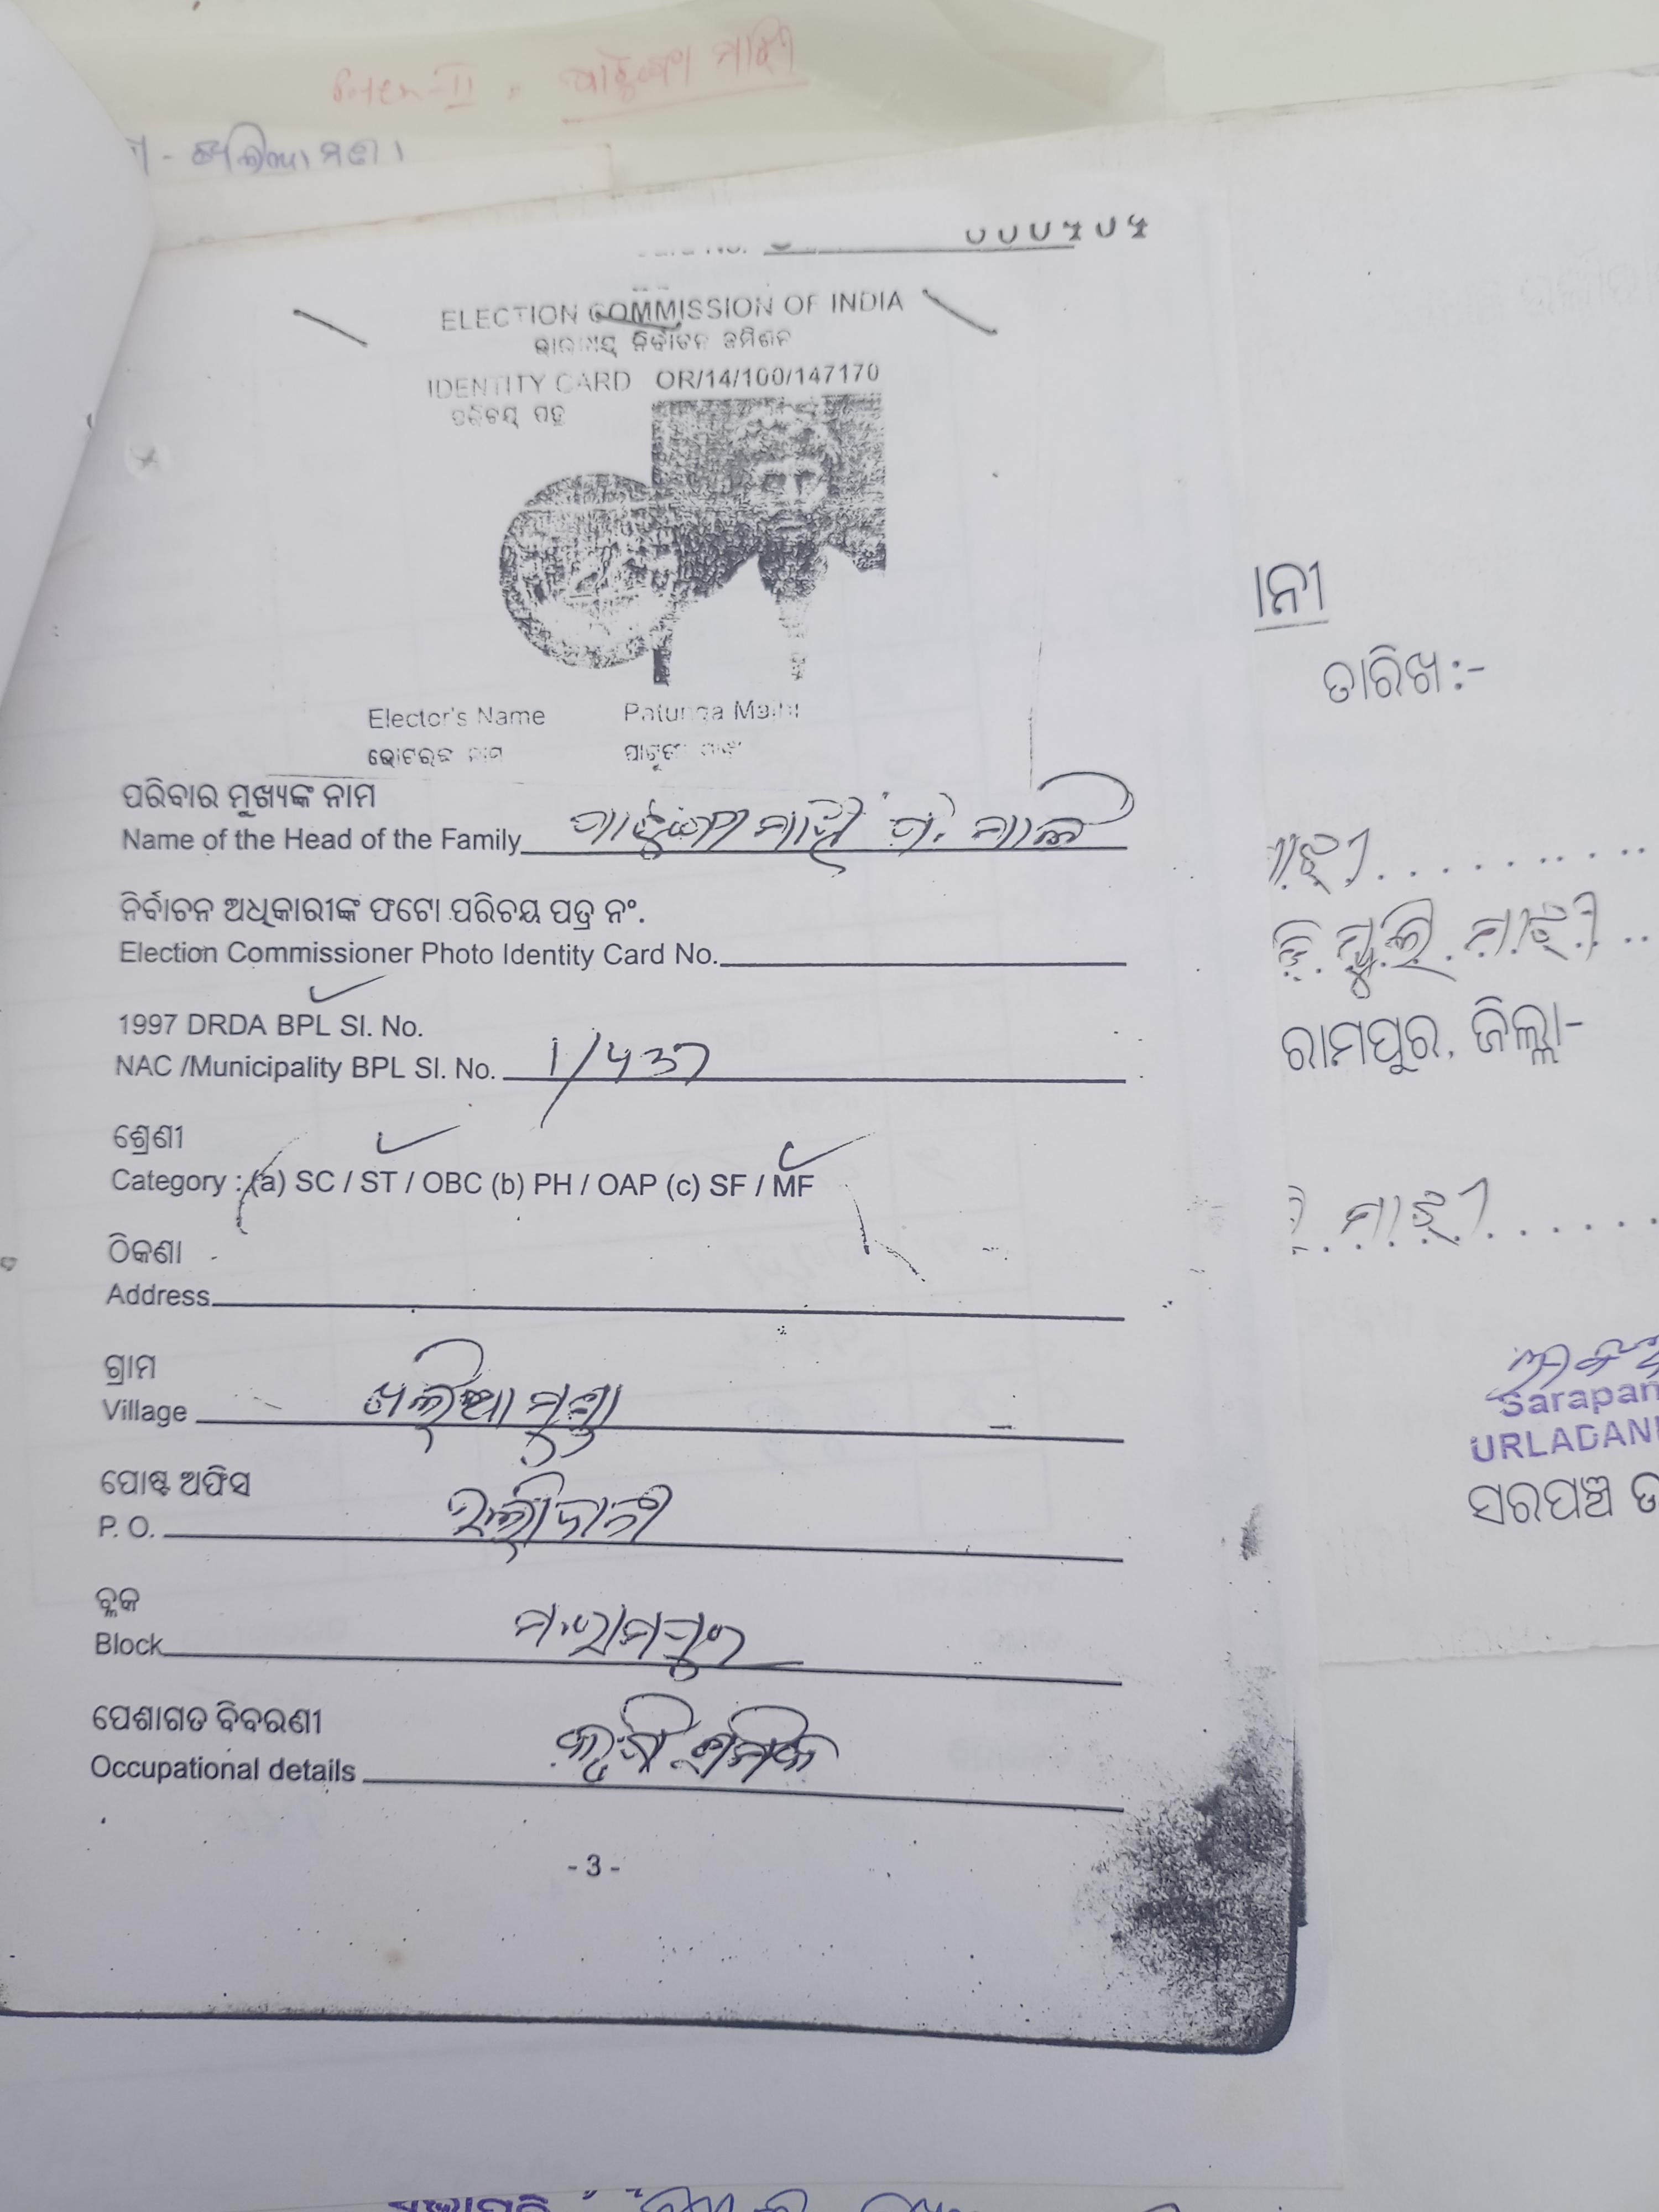 ELECTION COMMISSION OF INDIA
ନିର୍ବାଚନ କମିଶନ
IDENTITY CARD OR/14/100/147170
ପରିଚୟ ପତ୍ର
Elector's Name Patunga Majhi
ପରିବାର ମୁଖ୍ୟଙ୍କ ନାମ
Name of the Head of the Family
ନିର୍ବାଚନ ଅଧିକାରୀଙ୍କ ଫଟୋ ପରିଚୟ ପତ୍ର ନଂ.
Election Commissioner Photo Identity Card No.
1997 DRDA BPL Sl. No.
NAC /Municipality BPL Sl. No. 1/437
ଶ୍ରେଣୀ
Category : (a) SC / ST / OBC (b) PH / OAP (c) SF / MF
ଠିକଣା
Address
ଗ୍ରାମ
Village ଖଲିଆମୁଣ୍ଡା
ପୋଷ୍ଟ ଅଫିସ
P. O. ଉର୍ଲାଦାନୀ
ବ୍ଲକ
Block ମ.ରାମପୁର
ପେଶାଗତ ବିବରଣୀ
Occupational details କୃଷି ଶ୍ରମିକ
- 3 -
ାନୀ
ତାରିଖ:-
ମାଝୀ
ରାମପୁର, ଜିଲ୍ଲା-
ମାଝୀ
Sarapan
URLADANI
ସରପଞ୍ଚ ଉ